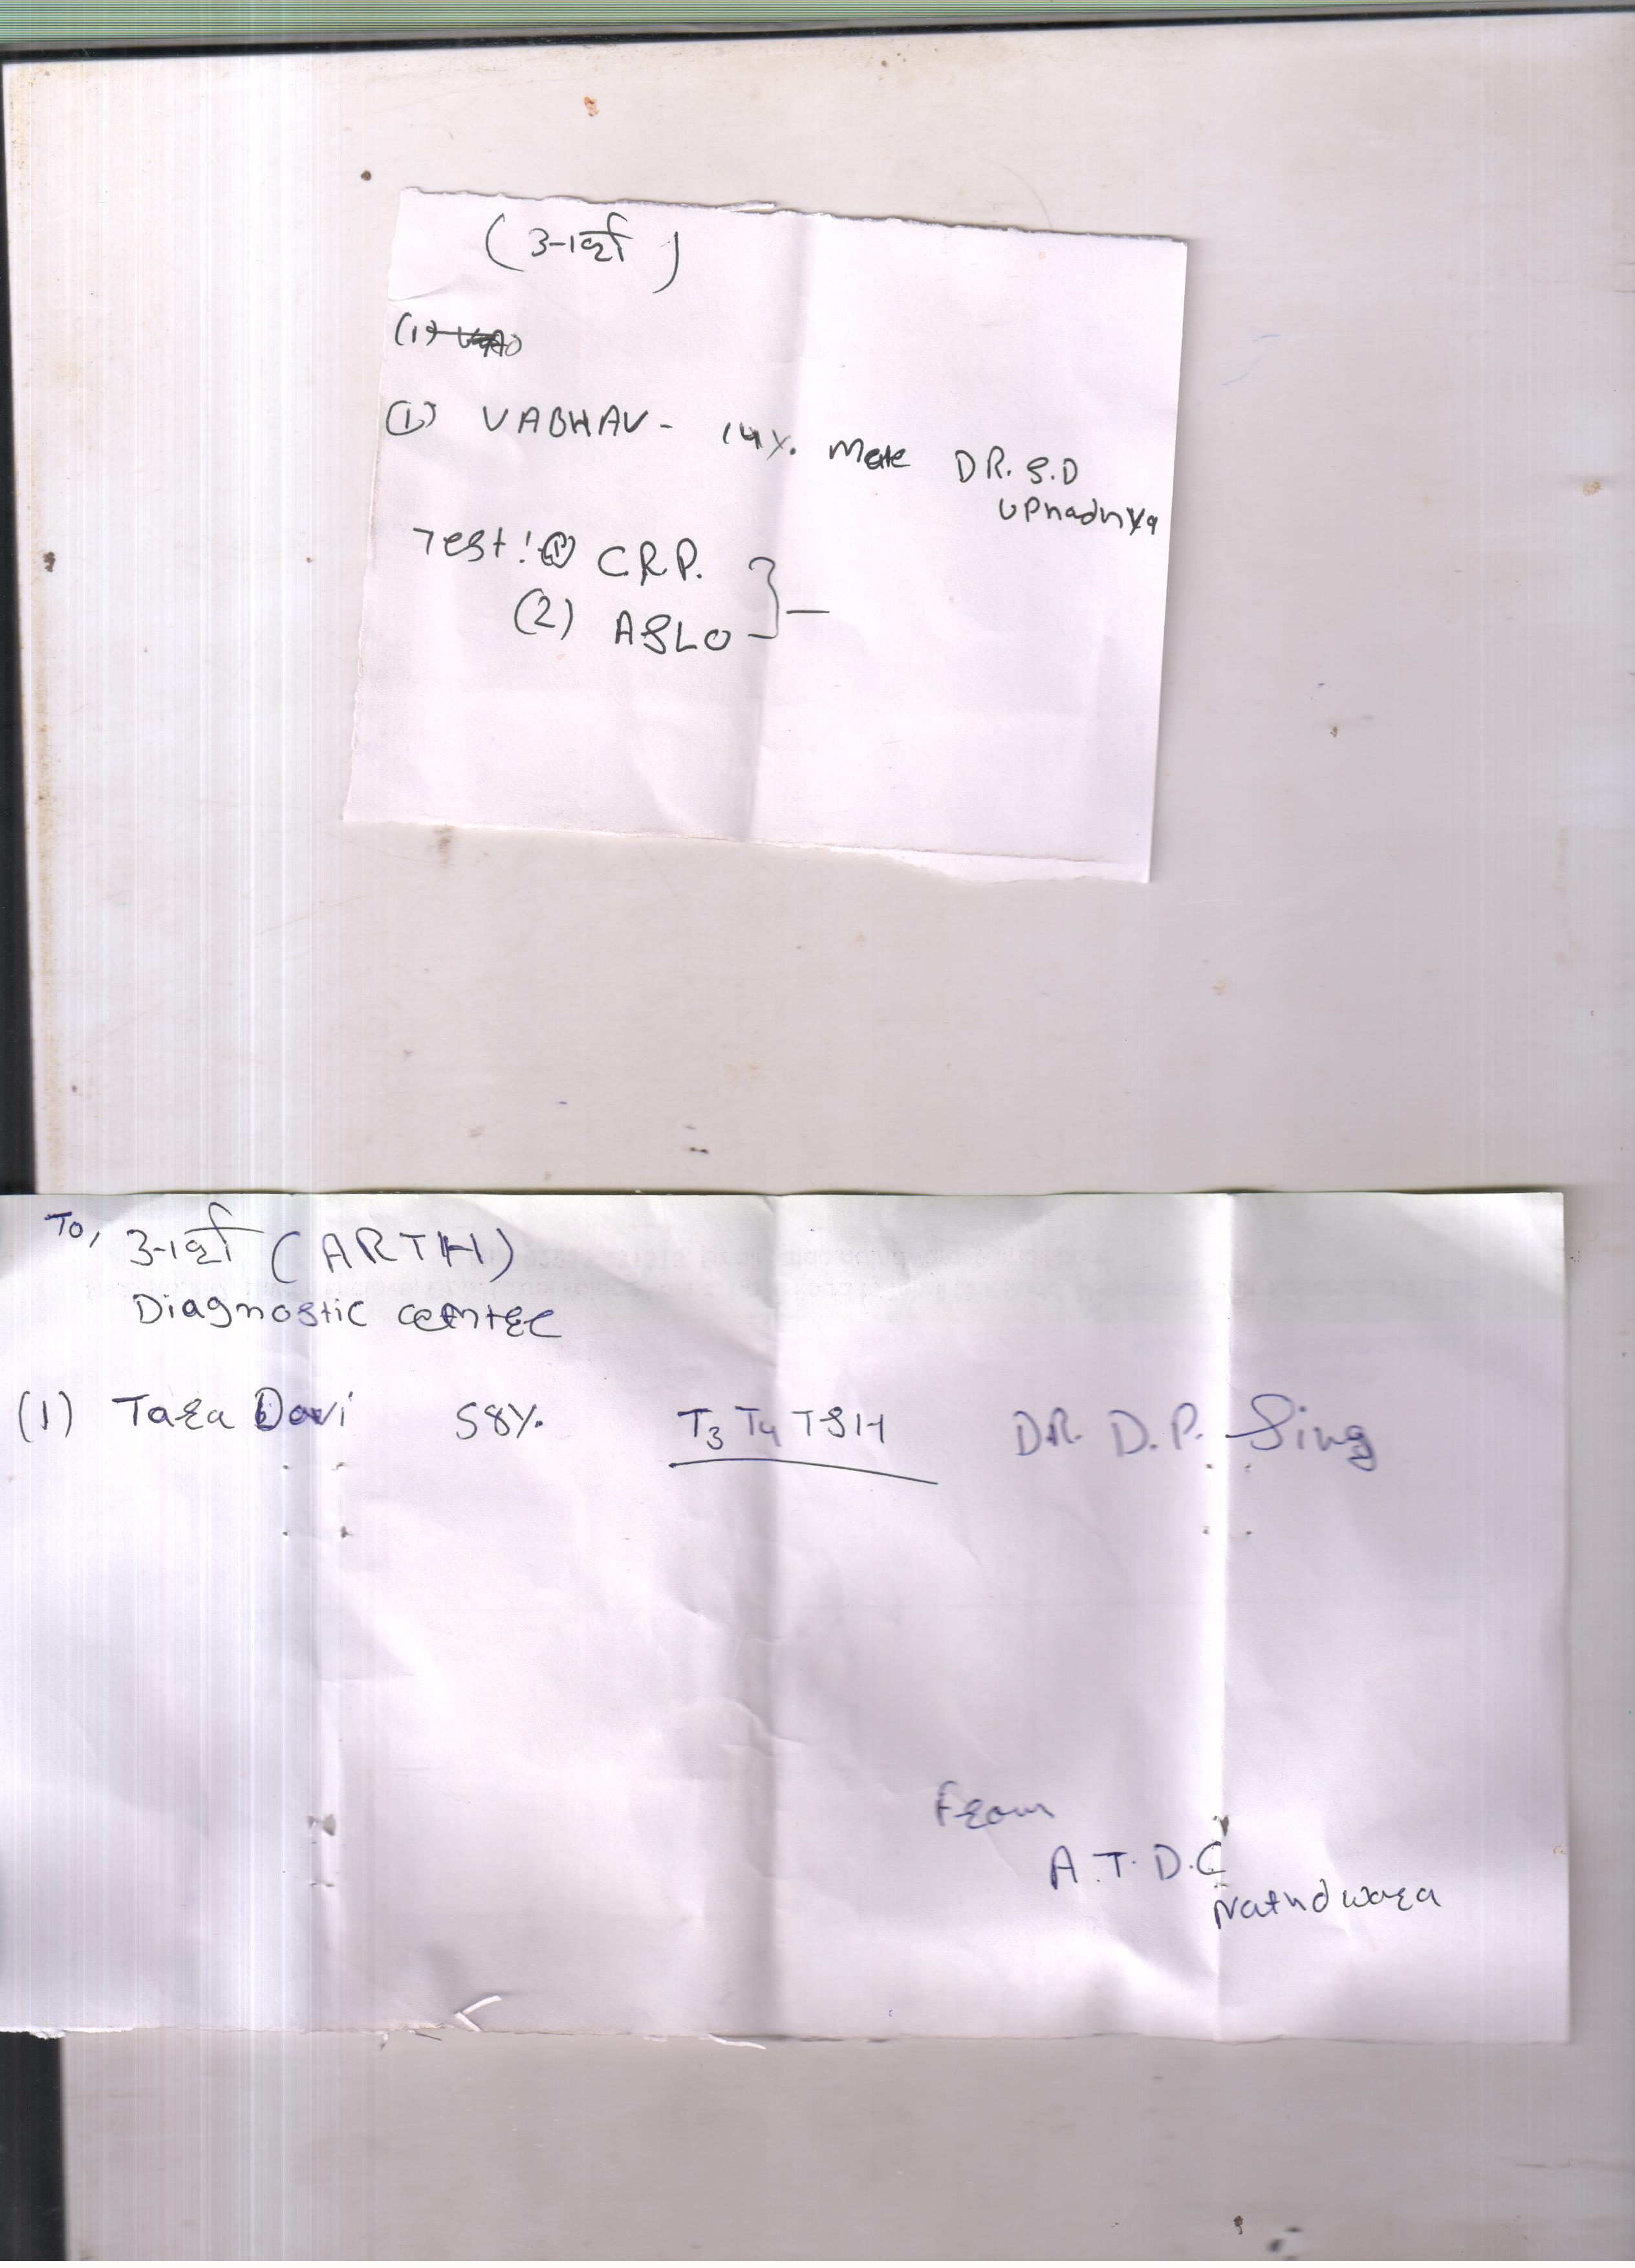 (अर्थ)
(1)
(1) VABHAV - 14Y. Male DR. S.D
Uphadhya
Test: (1) C.R.P.
(2) ASLO
To, अर्थ (ARTH)
Diagnostic centre
(1) Tara Devi 58Y. T3 T4 TSH DR. D.P. Sing
From
A.T.D.C
Nathdwara